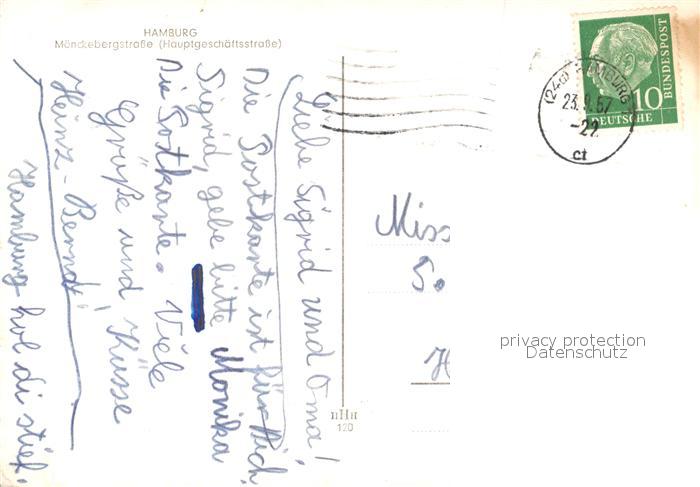 HAMBURG
Mönckebergstraße (Hauptgeschäftsstraße)
Liebe Sigrid und Oma!
Die Postkarte ist für Dich,
Sigrid, gebe bitte Monika
Die Postkarte. Viele
Grüße und Küsse
Heinz-Bernd!
Hamburg hol di stief.
BUNDESPOST
10
DEUTSCHE
(24a) HAMBURG
23.9.57
-22
ct
Miss
So
H
privacy protection
Datenschutz
HHH
120